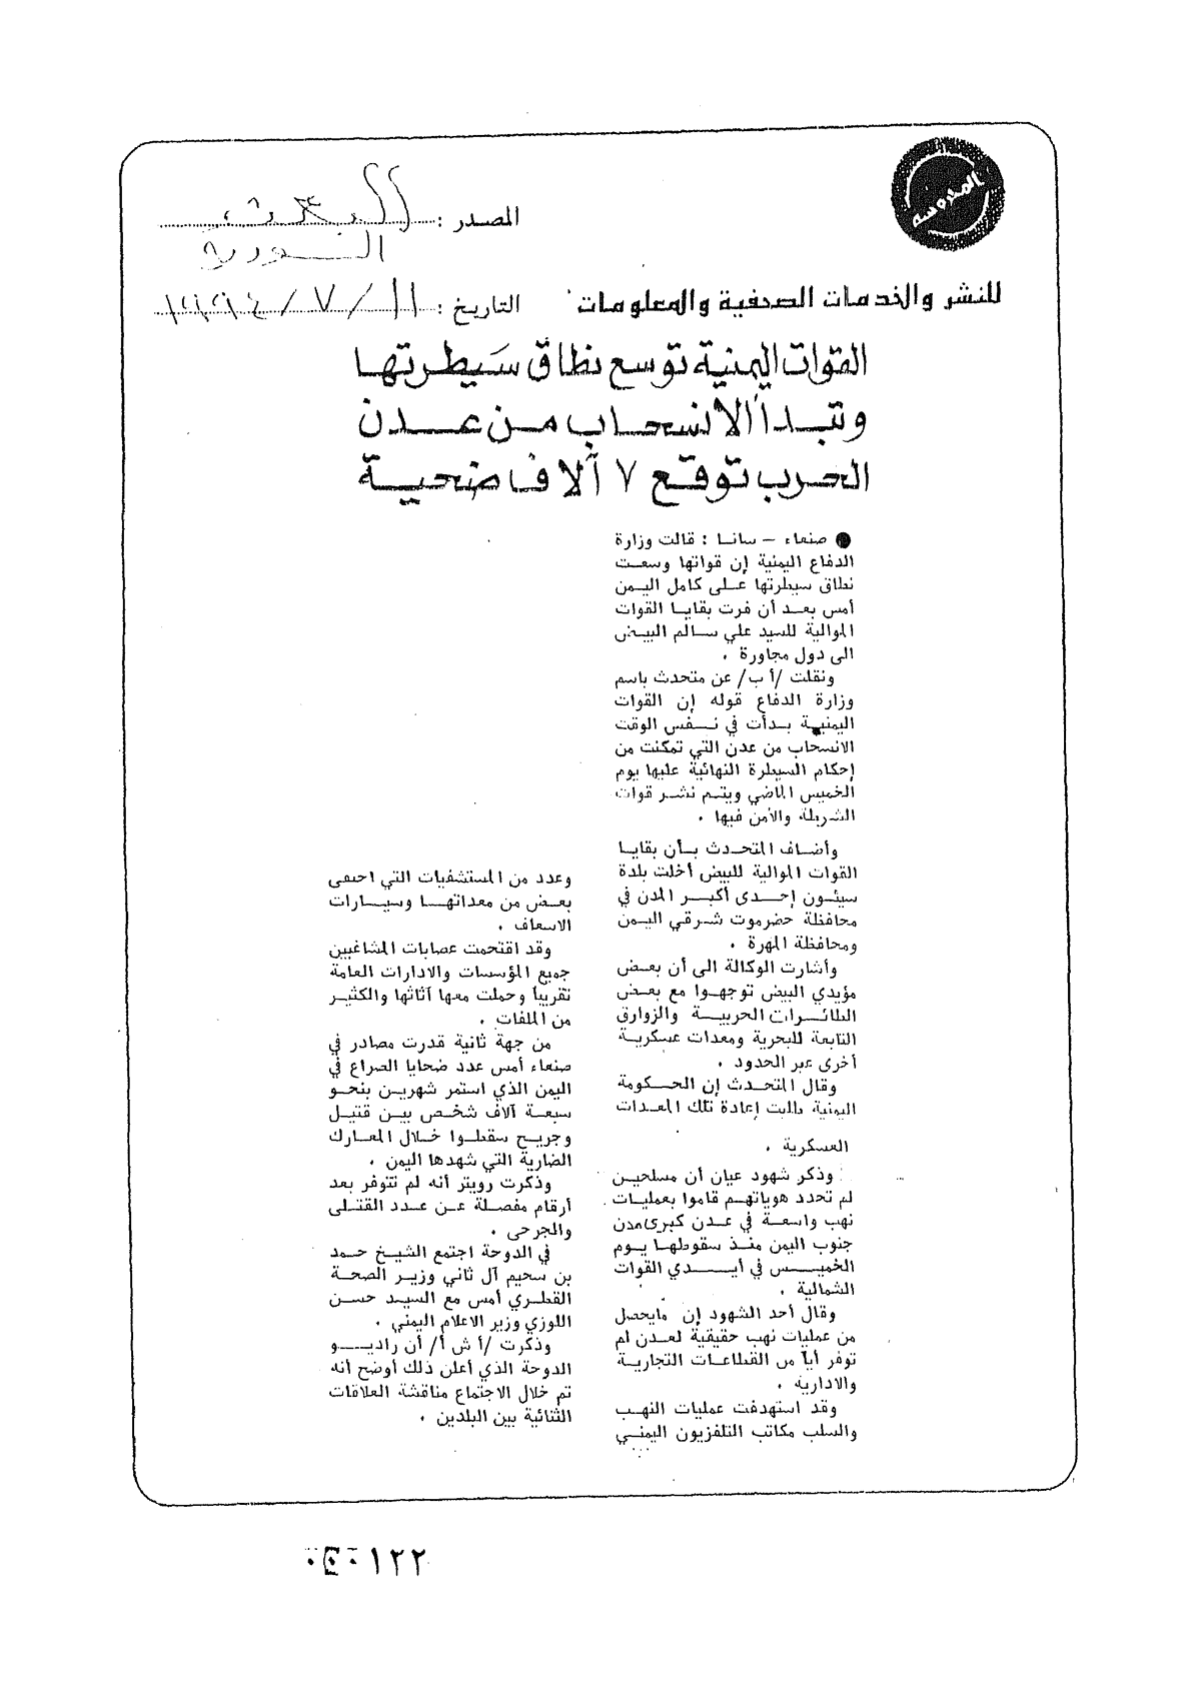 المحروسة
المصدر : البعث
السورية
للنشر والخدمات الصحفية والمعلومات
التاريخ : ١١ / ٧ / ١٩٩٤
القوات اليمنية توسع نطاق سيطرتها
وتبدأ الانسحاب من عدن
الحرب توقع ٧ آلاف ضحية
● صنعاء – سانا : قالت وزارة
الدفاع اليمنية إن قواتها وسعت
نطاق سيطرتها على كامل اليمن
أمس بعد أن فرت بقايا القوات
الموالية للسيد علي سالم البيض
الى دول مجاورة .
ونقلت /أ ب/ عن متحدث باسم
وزارة الدفاع قوله إن القوات
اليمنية بدأت في نفس الوقت
الانسحاب من عدن التي تمكنت من
إحكام السيطرة النهائية عليها يوم
الخميس الماضي ويتم نشر قوات
الشرطة والأمن فيها .
وأضاف المتحدث بأن بقايا
القوات الموالية للبيض أخلت بلدة
سيئون إحدى أكبر المدن في
محافظة حضرموت شرقي اليمن
ومحافظة المهرة .
وأشارت الوكالة الى أن بعض
مؤيدي البيض توجهوا مع بعض
الطائرات الحربية والزوارق
التابعة للبحرية ومعدات عسكرية
أخرى عبر الحدود .
وقال المتحدث إن الحكومة
اليمنية طلبت إعادة تلك المعدات
العسكرية .
وذكر شهود عيان أن مسلحين
لم تحدد هوياتهم قاموا بعمليات
نهب واسعة في عدن كبرى مدن
جنوب اليمن منذ سقوطها يوم
الخميس في أيدي القوات
الشمالية .
وقال أحد الشهود إن مايحصل
من عمليات نهب حقيقية لعدن لم
توفر أياً من القطاعات التجارية
والادارية .
وقد استهدفت عمليات النهب
والسلب مكاتب التلفزيون اليمني
وعدد من المستشفيات التي اختفى
بعض من معداتها وسيارات
الاسعاف .
وقد اقتحمت عصابات المشاغبين
جميع المؤسسات والادارات العامة
تقريباً وحملت معها آثاثها والكثير
من الملفات .
من جهة ثانية قدرت مصادر في
صنعاء أمس عدد ضحايا الصراع في
اليمن الذي استمر شهرين بنحو
سبعة آلاف شخص بين قتيل
وجريح سقطوا خلال المعارك
الضارية التي شهدها اليمن .
وذكرت رويتر أنه لم تتوفر بعد
أرقام مفصلة عن عدد القتلى
والجرحى .
في الدوحة اجتمع الشيخ حمد
بن سحيم آل ثاني وزير الصحة
القطري أمس مع السيد حسن
اللوزي وزير الاعلام اليمني .
وذكرت /أ ش أ/ أن راديو
الدوحة الذي أعلن ذلك أوضح أنه
تم خلال الاجتماع مناقشة العلاقات
الثنائية بين البلدين .